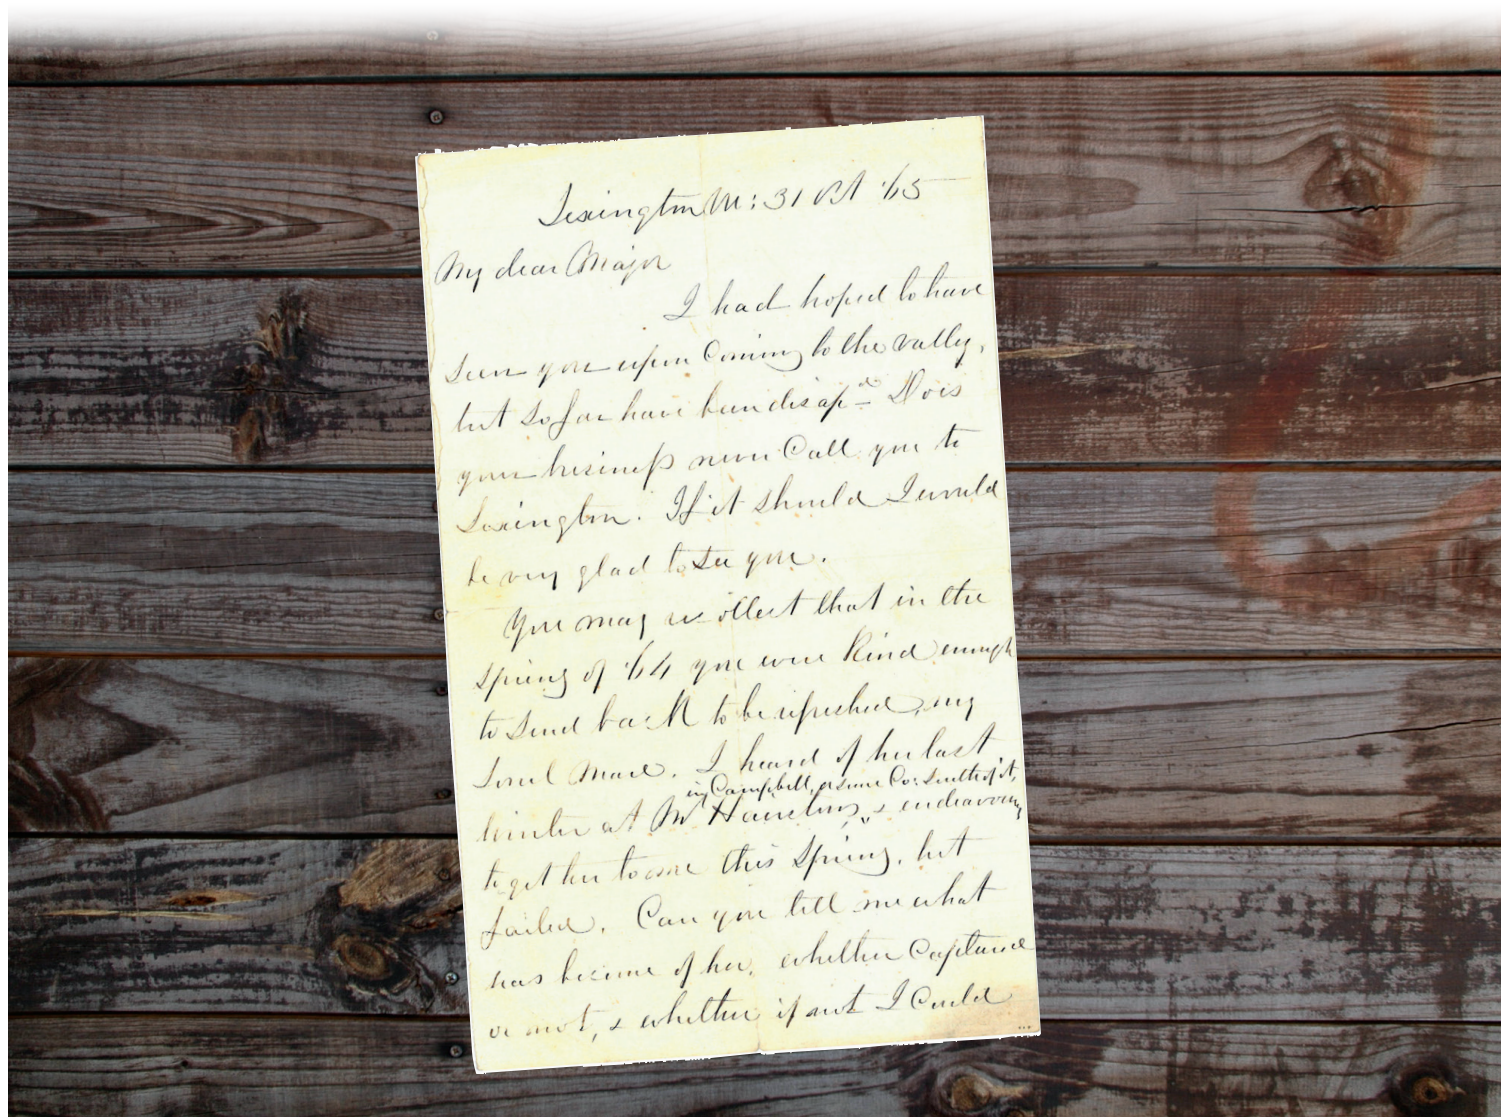 Lexington Va: 31 Oct '65
My dear Major
I had hoped to have
seen you upon coming to the valley,
but so far have been disapd Does
your business never call you to
Lexington. If it should I would
be very glad to see you.
You may recollect that in the
spring of '64 you were kind enough
to send back to be refreshed, my
sorel mare. I heard of her last
in Campbell, or some Co: South of it,
winter at Mr Hairstons, & endeavoured
to get her to me this spring, but
failed. Can you tell me what
has become of her, whether captured
or not, & whether if not I could